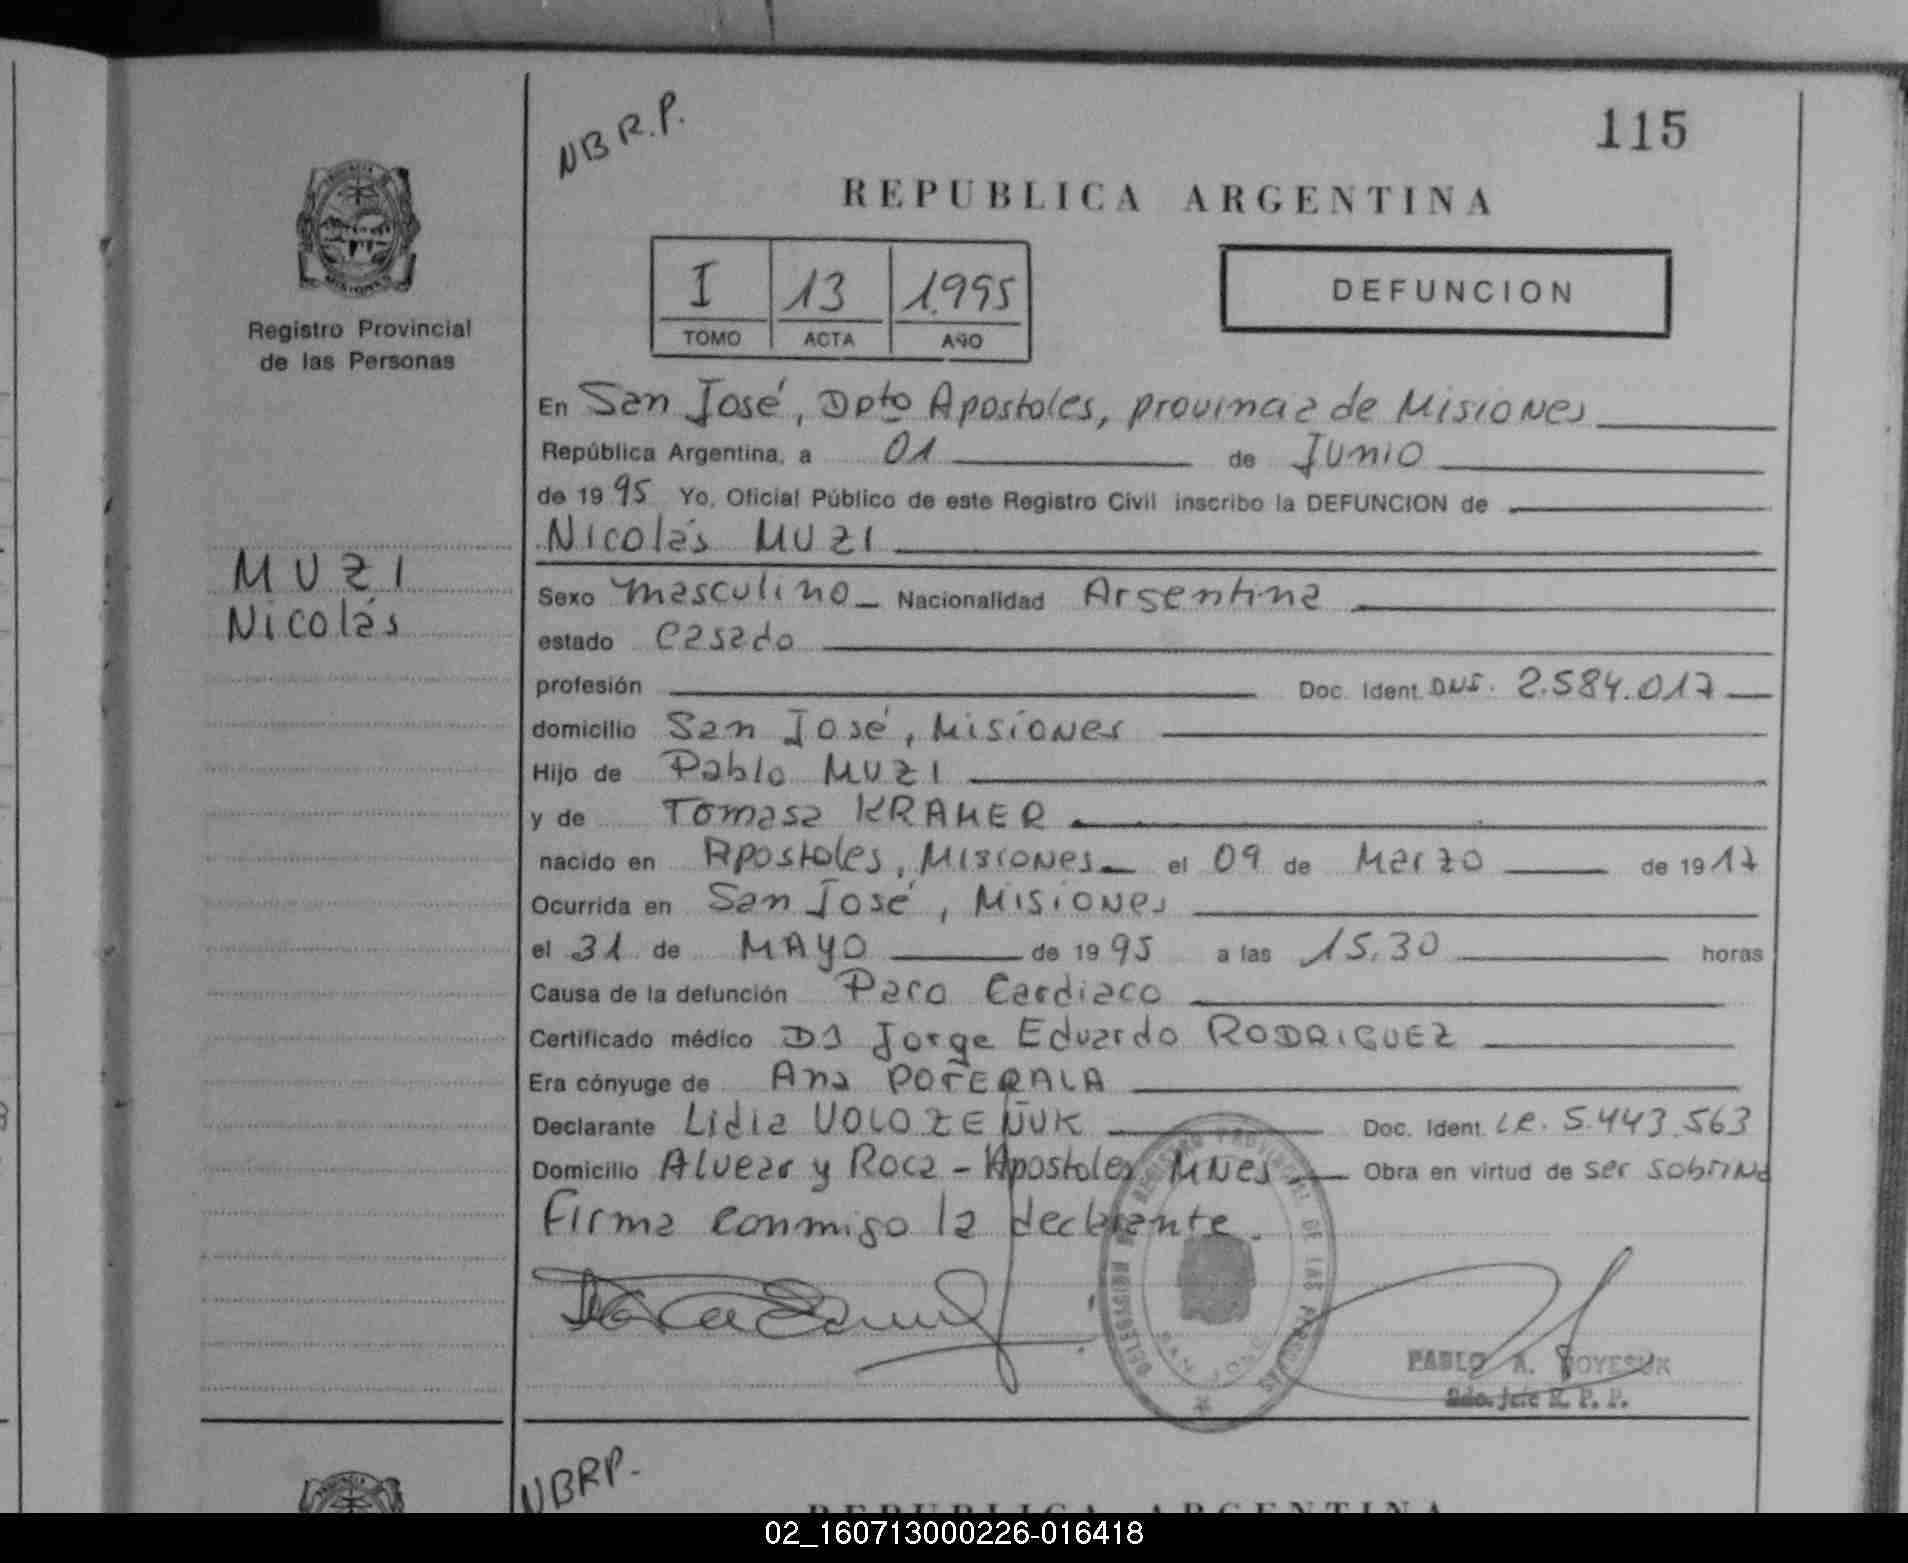 NBR.P.
115
REPUBLICA ARGENTINA
I 13 1.995
TOMO ACTA AÑO
DEFUNCION
Registro Provincial
de las Personas
En San José, Dpto Apostoles, provincia de Misiones
República Argentina, a 01 de Junio
de 1995 Yo, Oficial Público de este Registro Civil inscribo la DEFUNCION de
Nicolás MUZI
MUZI
Nicolás
Sexo masculino Nacionalidad Argentina
estado Casado
profesión Doc. Ident. DNI. 2.584.017
domicilio San José, Misiones
Hijo de Pablo MUZI
y de Tomasa KRAMER
nacido en Apostoles, Misiones el 09 de Marzo de 1917
Ocurrida en San José, Misiones
el 31 de MAYO de 1995 a las 15,30 horas
Causa de la defunción Paro Cardiaco
Certificado médico Dr Jorge Eduardo RODRIGUEZ
Era cónyuge de Ana POTERALA
Declarante Lidia VOLOZEÑUK Doc. Ident. LC. 5.443.563
Domicilio Alvear y Roca - Apostoles Mnes Obra en virtud de ser sobrina
Firma conmigo la declarante.
REGISTRO PROVINCIAL DE LAS PERSONAS
SAN JOSE
PABLO A.
R. P. P.
NBRP.
REPUBLICA ARGENTINA
02_160713000226-016418